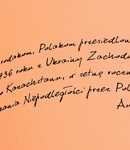 rodakom, Polakom przesiedlon
936 roku z Ukrainy Zachodn
Kazachstanu, w setną roczn
ania Niepodległości przez Pol
An